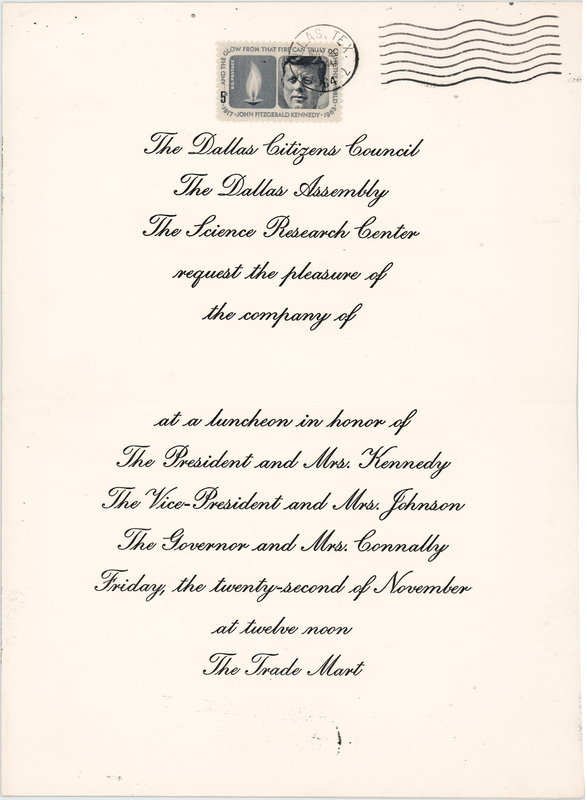 DALLAS, TEX
AND THE GLOW FROM THAT FIRE CAN TRULY LIGHT THE WORLD
U.S. POSTAGE
5¢
1917·JOHN FITZGERALD KENNEDY·1963
The Dallas Citizens Council
The Dallas Assembly
The Science Research Center
request the pleasure of
the company of
at a luncheon in honor of
The President and Mrs. Kennedy
The Vice-President and Mrs. Johnson
The Governor and Mrs. Connally
Friday, the twenty-second of November
at twelve noon
The Trade Mart